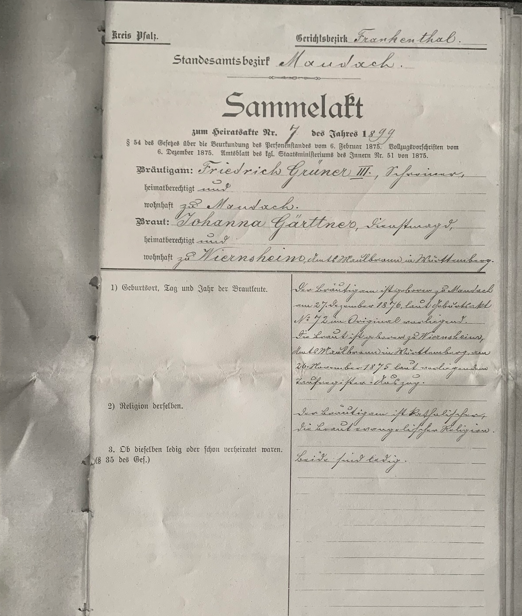 Kreis Pfalz.
Gerichtsbezirk Frankenthal.
Standesamtsbezirk Maudach.
Sammelakt
zum Heiratsakte Nr. 7 des Jahres 1899
§ 54 des Gesetzes über die Beurkundung des Personenstandes vom 6. Februar 1875. Vollzugsvorschriften vom
6. Dezember 1875. Amtsblatt des kgl. Staatsministeriums des Innern Nr. 51 von 1875.
Bräutigam: Friedrich Grüner III., Schreiner,
heimatberechtigt und
wohnhaft zu Maudach.
Braut: Johanna Gärttner, Dienstmagd,
heimatberechtigt und
wohnhaft zu Wiernsheim, Amt Maulbronn in Württemberg.
1) Geburtsort, Tag und Jahr der Brautleute.
Der Bräutigam ist geboren zu Maudach
am 27. Dezember 1876, laut Geburtsakt
No 72 im Original vorliegend.
Die Braut ist geboren zu Wiernsheim,
Amt Maulbronn in Württemberg, am
26. November 1875 laut vorliegendem
Taufregister-Auszug.
2) Religion derselben.
Der Bräutigam ist katholischer,
die Braut evangelischer Religion.
3. Ob dieselben ledig oder schon verheiratet waren.
(§ 35 des Ges.)
Beide sind ledig.